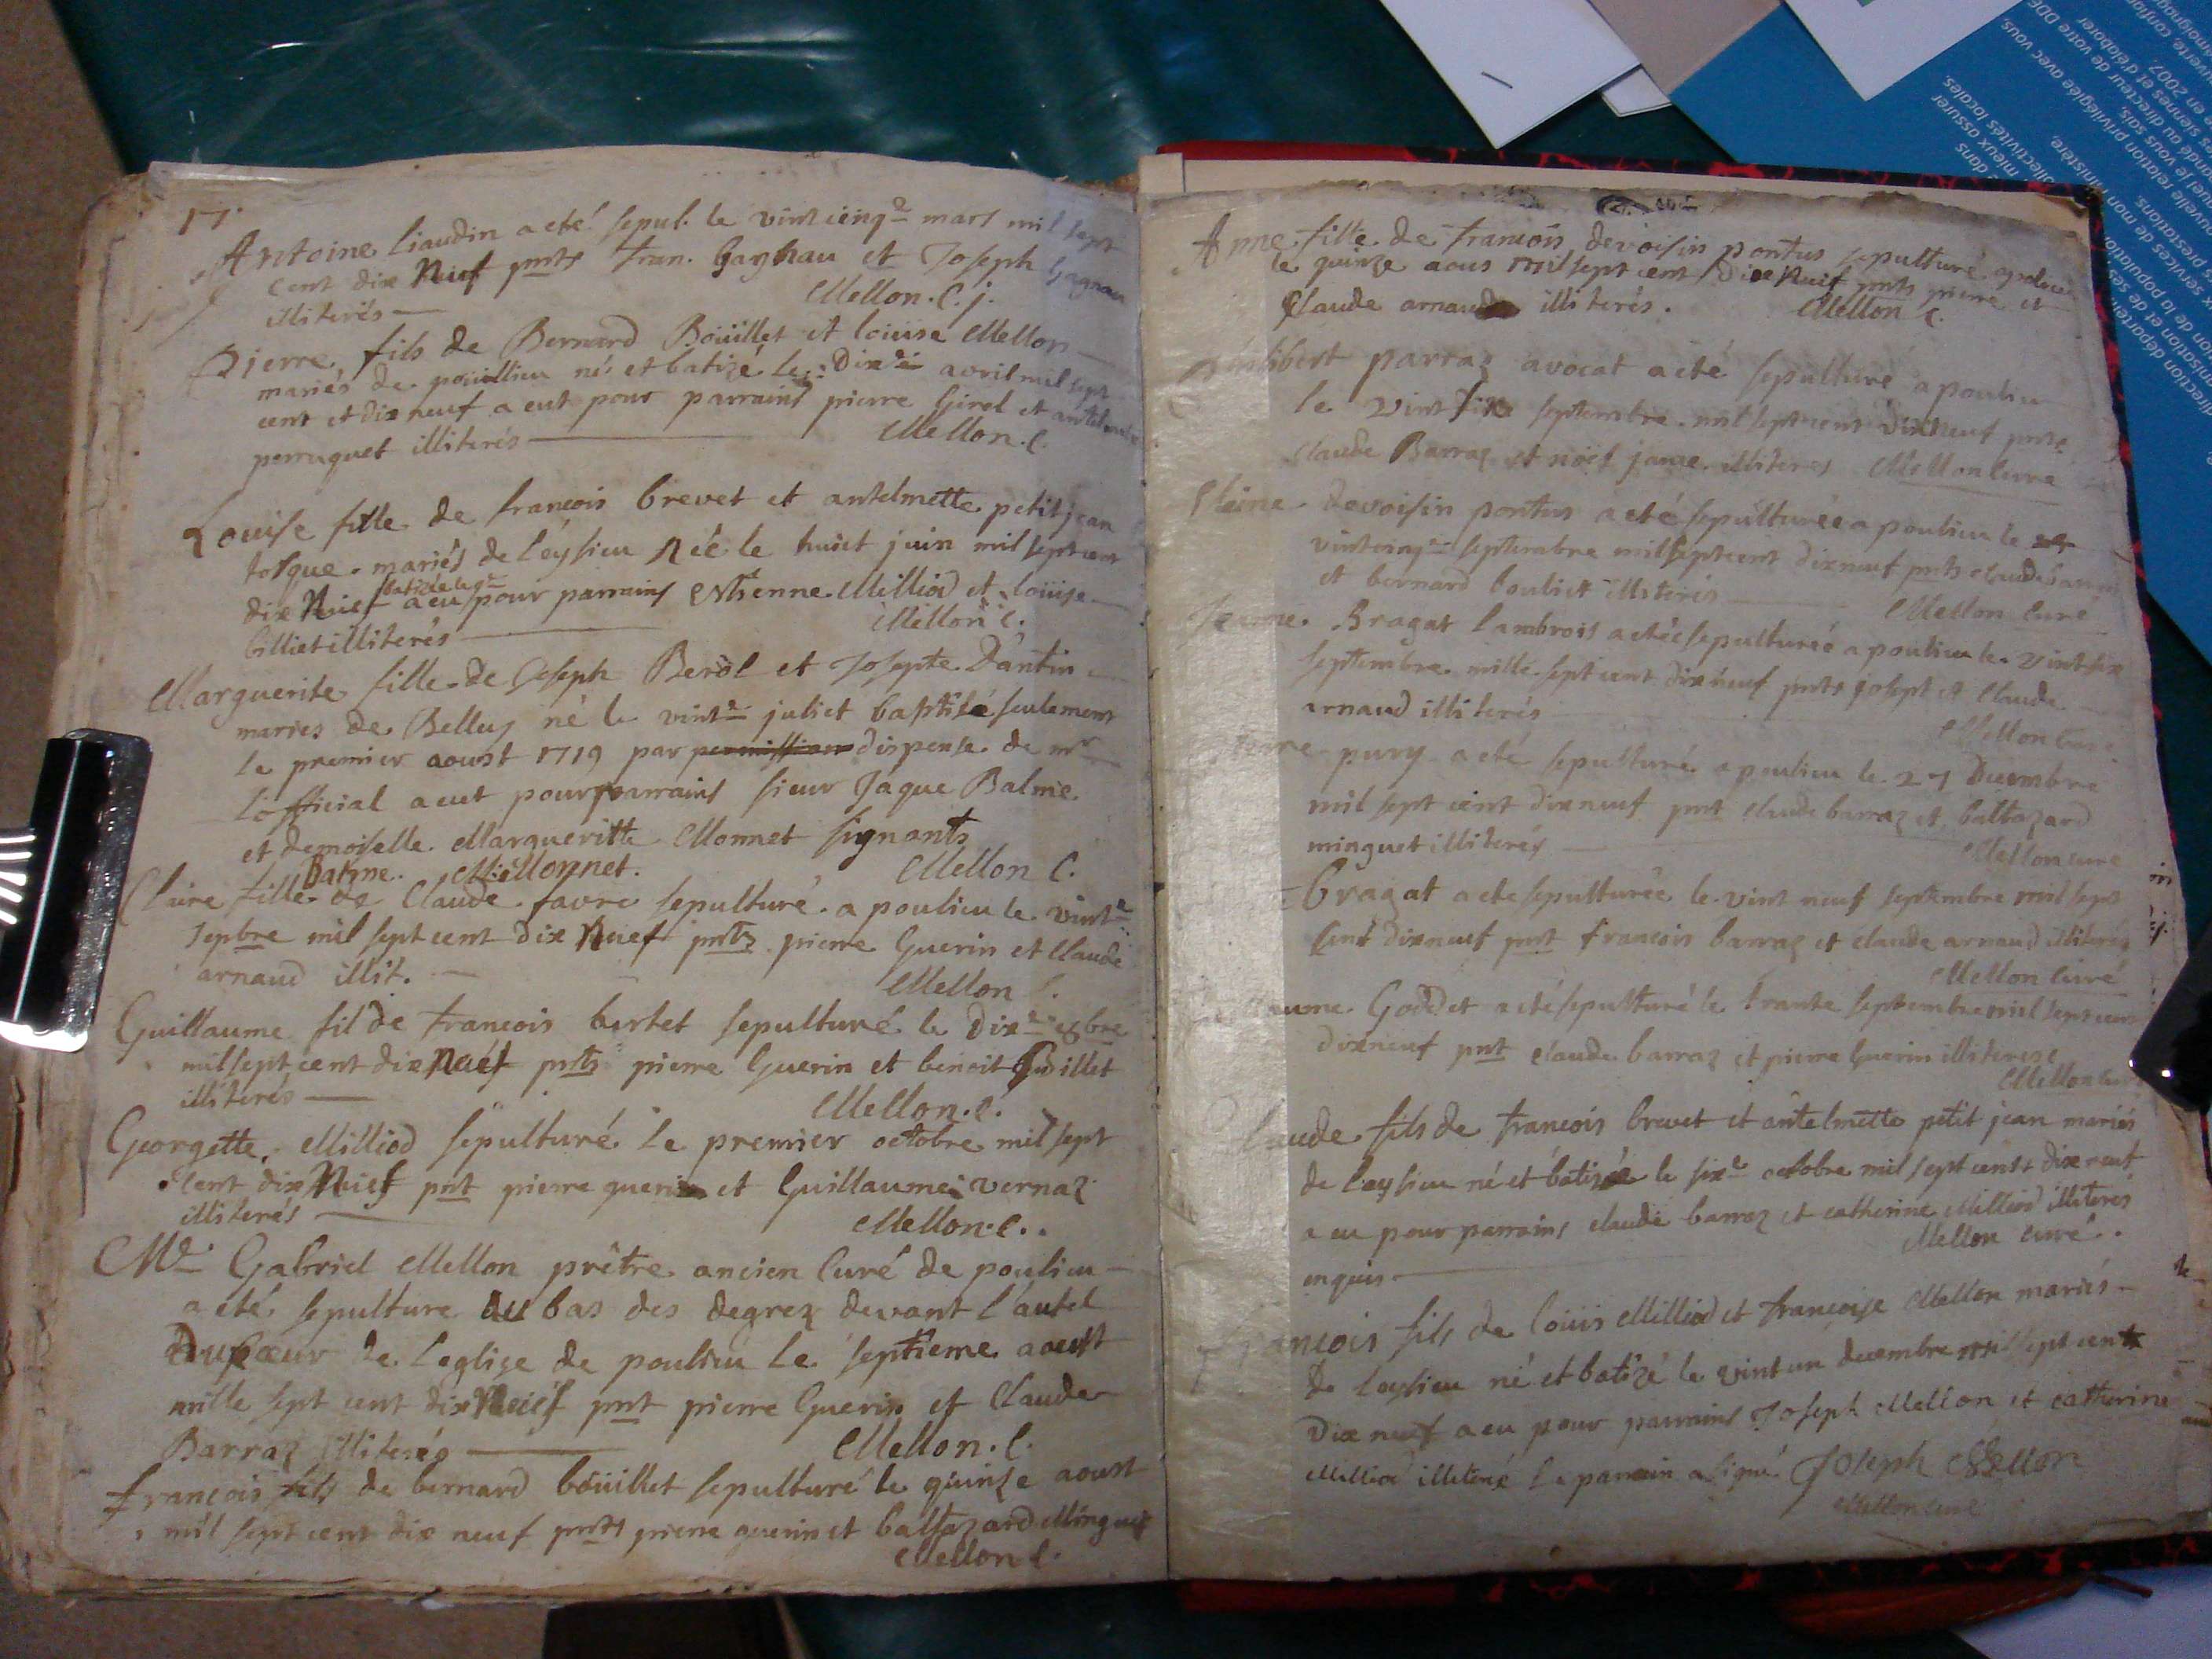 17.
Antoine liaudin a eté sepul. le vint cinq.e mars mil sept
cent dix neuf pnts fran. Gaynau et Joseph Gagnau
illiterés Mellon. C. j.
Pierre fils de Bernard Boüillet et loüise Mellon
mariés de poüillieu né et batizé le avril mil sept
cent et dix neuf a eut pour parrains pierre Girel et
perruquet illiterés Mellon. C.
Louise fille de francois brevet et antelmette petitjean
tosque mariés de leÿsieu née le huict juin mil sept cent
dix neuf a eu pour parrains Milliod et loüise
billiet illiterés Mellon C.
Marguerite fille de Joseph Berol et Josepte Dantin
maries de Belley né le vint.e juliet baptisé seulement
le premier aoust 1719 par permission dispense de mr
l'official a eut pour parrains sieur Jaque Balme
et demoiselle Margueritte Monnet signants
Balme. M: Monnet. Mellon C.
Claire fille de Claude favre sepulturé a poulieu le vint.e
sepbre mil sept cent dix neuf pnts pierre Guerin et Claude
arnaud illit. Mellon C.
Guillaume fil de francois bertet sepulturé le dix.e
mil sept cent dix neuf pnts pierre Guerin et benoit
illiterés Mellon. C.
Georgette Milliod sepulturé le premier octobre mil sept
cent dix neuf pnt pierre guerin et Guillaume vernaz
illiterés Mellon. C.
Mr Gabriel Mellon prêtre ancien Curé de poulieu
a eté sepulture au bas des degrez devant l'autel
du cœur de l'eglise de poulieu le septieme aoust
mille sept cent dix neuf pnt pierre Guerin et Claude
Barraz illiterés Mellon. C.
francois fils de bernard boüillet sepulturé le quinse aoust
mil sept cent dix neuf pnts pierre guerin et baltazard Minguet
Mellon C.
Anne fille de francois devoisin pontus sepulturé
le quinze aous mil sept cent dix neuf pnts pierre et
Claude arnaud illiterés. Mellon C.
philibert parraz avocat a eté sepulturé a poulieu
le vint six septembre mil sept cent dix neuf pnts
Claude Barraz et noël janre illiteres Mellon Curé
devoisin pontus a eté sepulturée a poulieu le
vint cinq.e septembre mil sept cent dix neuf pnts claude
et bernard bouliet illiterés Mellon Curé
Jeanne Bragat lambrois a eté sepulturée a poulieu le vint six
septembre mille sept cent dix neuf pnts josept et Claude
arnaud illiterés Mellon Curé
pury a eté sepulturé a poulieu le 27 decembre
mil sept cent dix neuf pnt claude barraz et baltazard
minguet illiterés Mellon curé
bragat a ete sepulturée le vint neuf septembre mil sept
cent dix neuf pnt francois barraz et claude arnaud illiterés
Mellon Curé
Goddet a eté sepulturé le trante septembre mil sept cent
dix neuf pnt claude barraz et pierre Guerin illiterese
Mellon Curé
Claude fils de francois brevet et antelmette petit jean mariés
de leysieu né et batizée le six.e octobre mil sept cents dix neuf
a eu pour parrains claude barraz et catherine Milliod illiterés
enquis Mellon curé.
francois fils de loüis Milliod et françoise Mellon mariés
de leysieu né et batizé le vint un decembre mil sept cents
dix neuf a eu pour parrains Joseph Mellon et catherine
Milliod illiteré le parrain a signé Joseph Mellon
Mellon curé